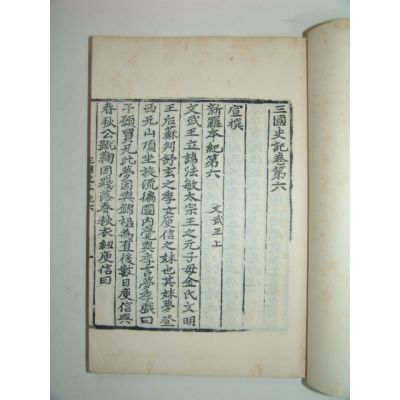 三國史記卷第六
宣撰
新羅本紀第六 文武王上
文武王立諱法敏太宗王之元子母金氏文明
王后蘇判舒玄之季女庾信之妹也其姊夢登
西兄山頂坐旋流徧國內覺與季言夢季戲曰
予願買兄此夢因與錦裙為直後數日庾信與
春秋公蹴鞠因踐落春秋衣紐庾信曰